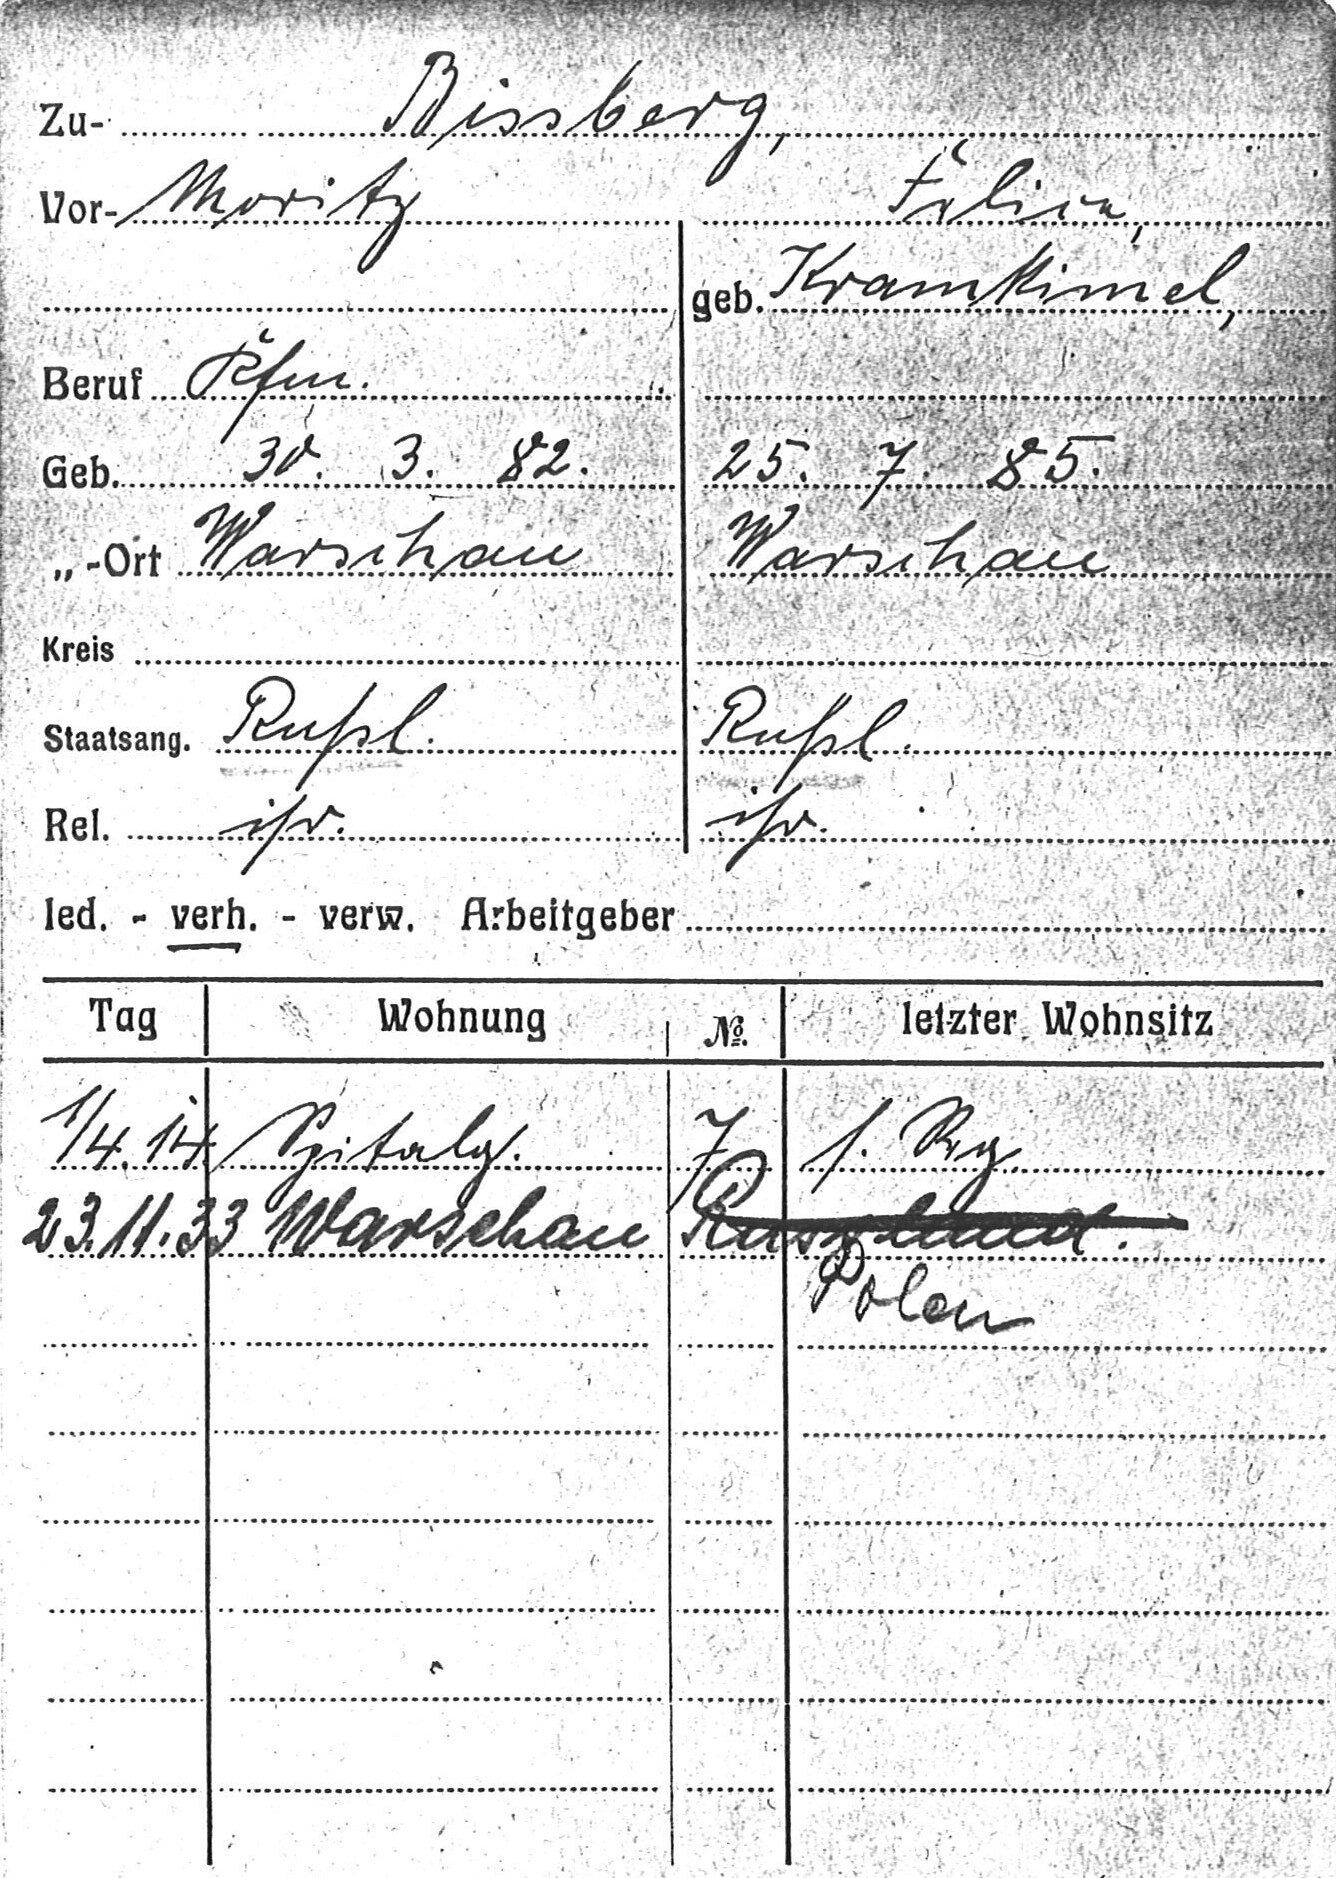 Zu- Bissberg,
Vor- Moritz Felicia,
geb. Kramkimel,
Beruf Kfm.
Geb. 30. 3. 82. 25. 7. 85.
„-Ort Warschau Warschau
Kreis
Staatsang. Rußl. Rußl.
Rel. isr. isr.
led. - verh. - verw. Arbeitgeber
Tag Wohnung No. letzter Wohnsitz
1/4. 14. Spitalg. 7
23.11.33 Warschau Russland.
Polen